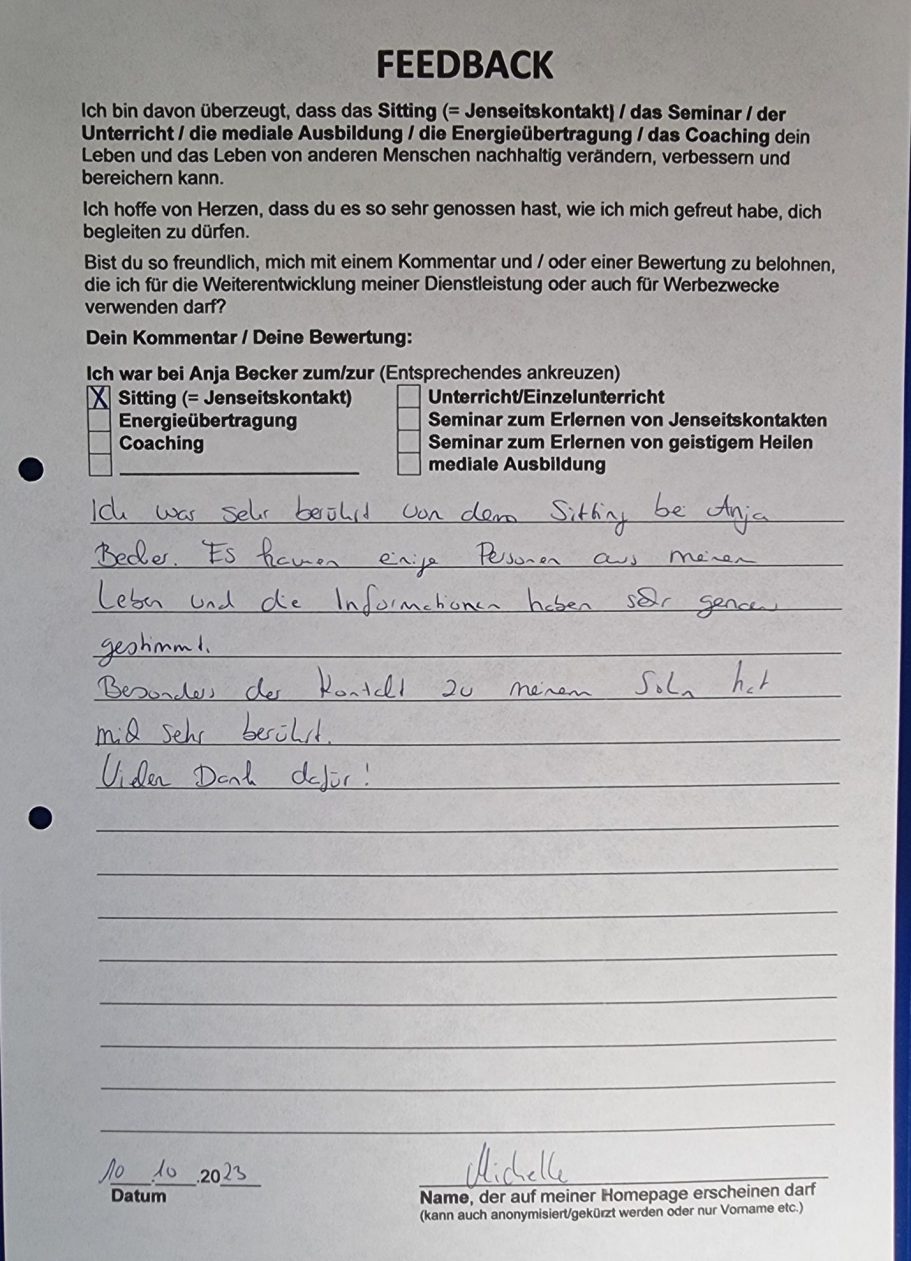 FEEDBACK
Ich bin davon überzeugt, dass das Sitting (= Jenseitskontakt) / das Seminar / der
Unterricht / die mediale Ausbildung / die Energieübertragung / das Coaching dein
Leben und das Leben von anderen Menschen nachhaltig verändern, verbessern und
bereichern kann.
Ich hoffe von Herzen, dass du es so sehr genossen hast, wie ich mich gefreut habe, dich
begleiten zu dürfen.
Bist du so freundlich, mich mit einem Kommentar und / oder einer Bewertung zu belohnen,
die ich für die Weiterentwicklung meiner Dienstleistung oder auch für Werbezwecke
verwenden darf?
Dein Kommentar / Deine Bewertung:
Ich war bei Anja Becker zum/zur (Entsprechendes ankreuzen)
X Sitting (= Jenseitskontakt) Unterricht/Einzelunterricht
Energieübertragung Seminar zum Erlernen von Jenseitskontakten
Coaching Seminar zum Erlernen von geistigem Heilen
mediale Ausbildung
Ich war sehr berührt von dem Sitting bei Anja
Becker. Es kamen einige Personen aus meinem
Leben und die Informationen haben sehr genau
gestimmt.
Besonders der Kontakt zu meinem Sohn hat
mich sehr berührt.
Vielen Dank dafür!
10.10.2023 Michelle
Datum Name, der auf meiner Homepage erscheinen darf
(kann auch anonymisiert/gekürzt werden oder nur Vorname etc.)